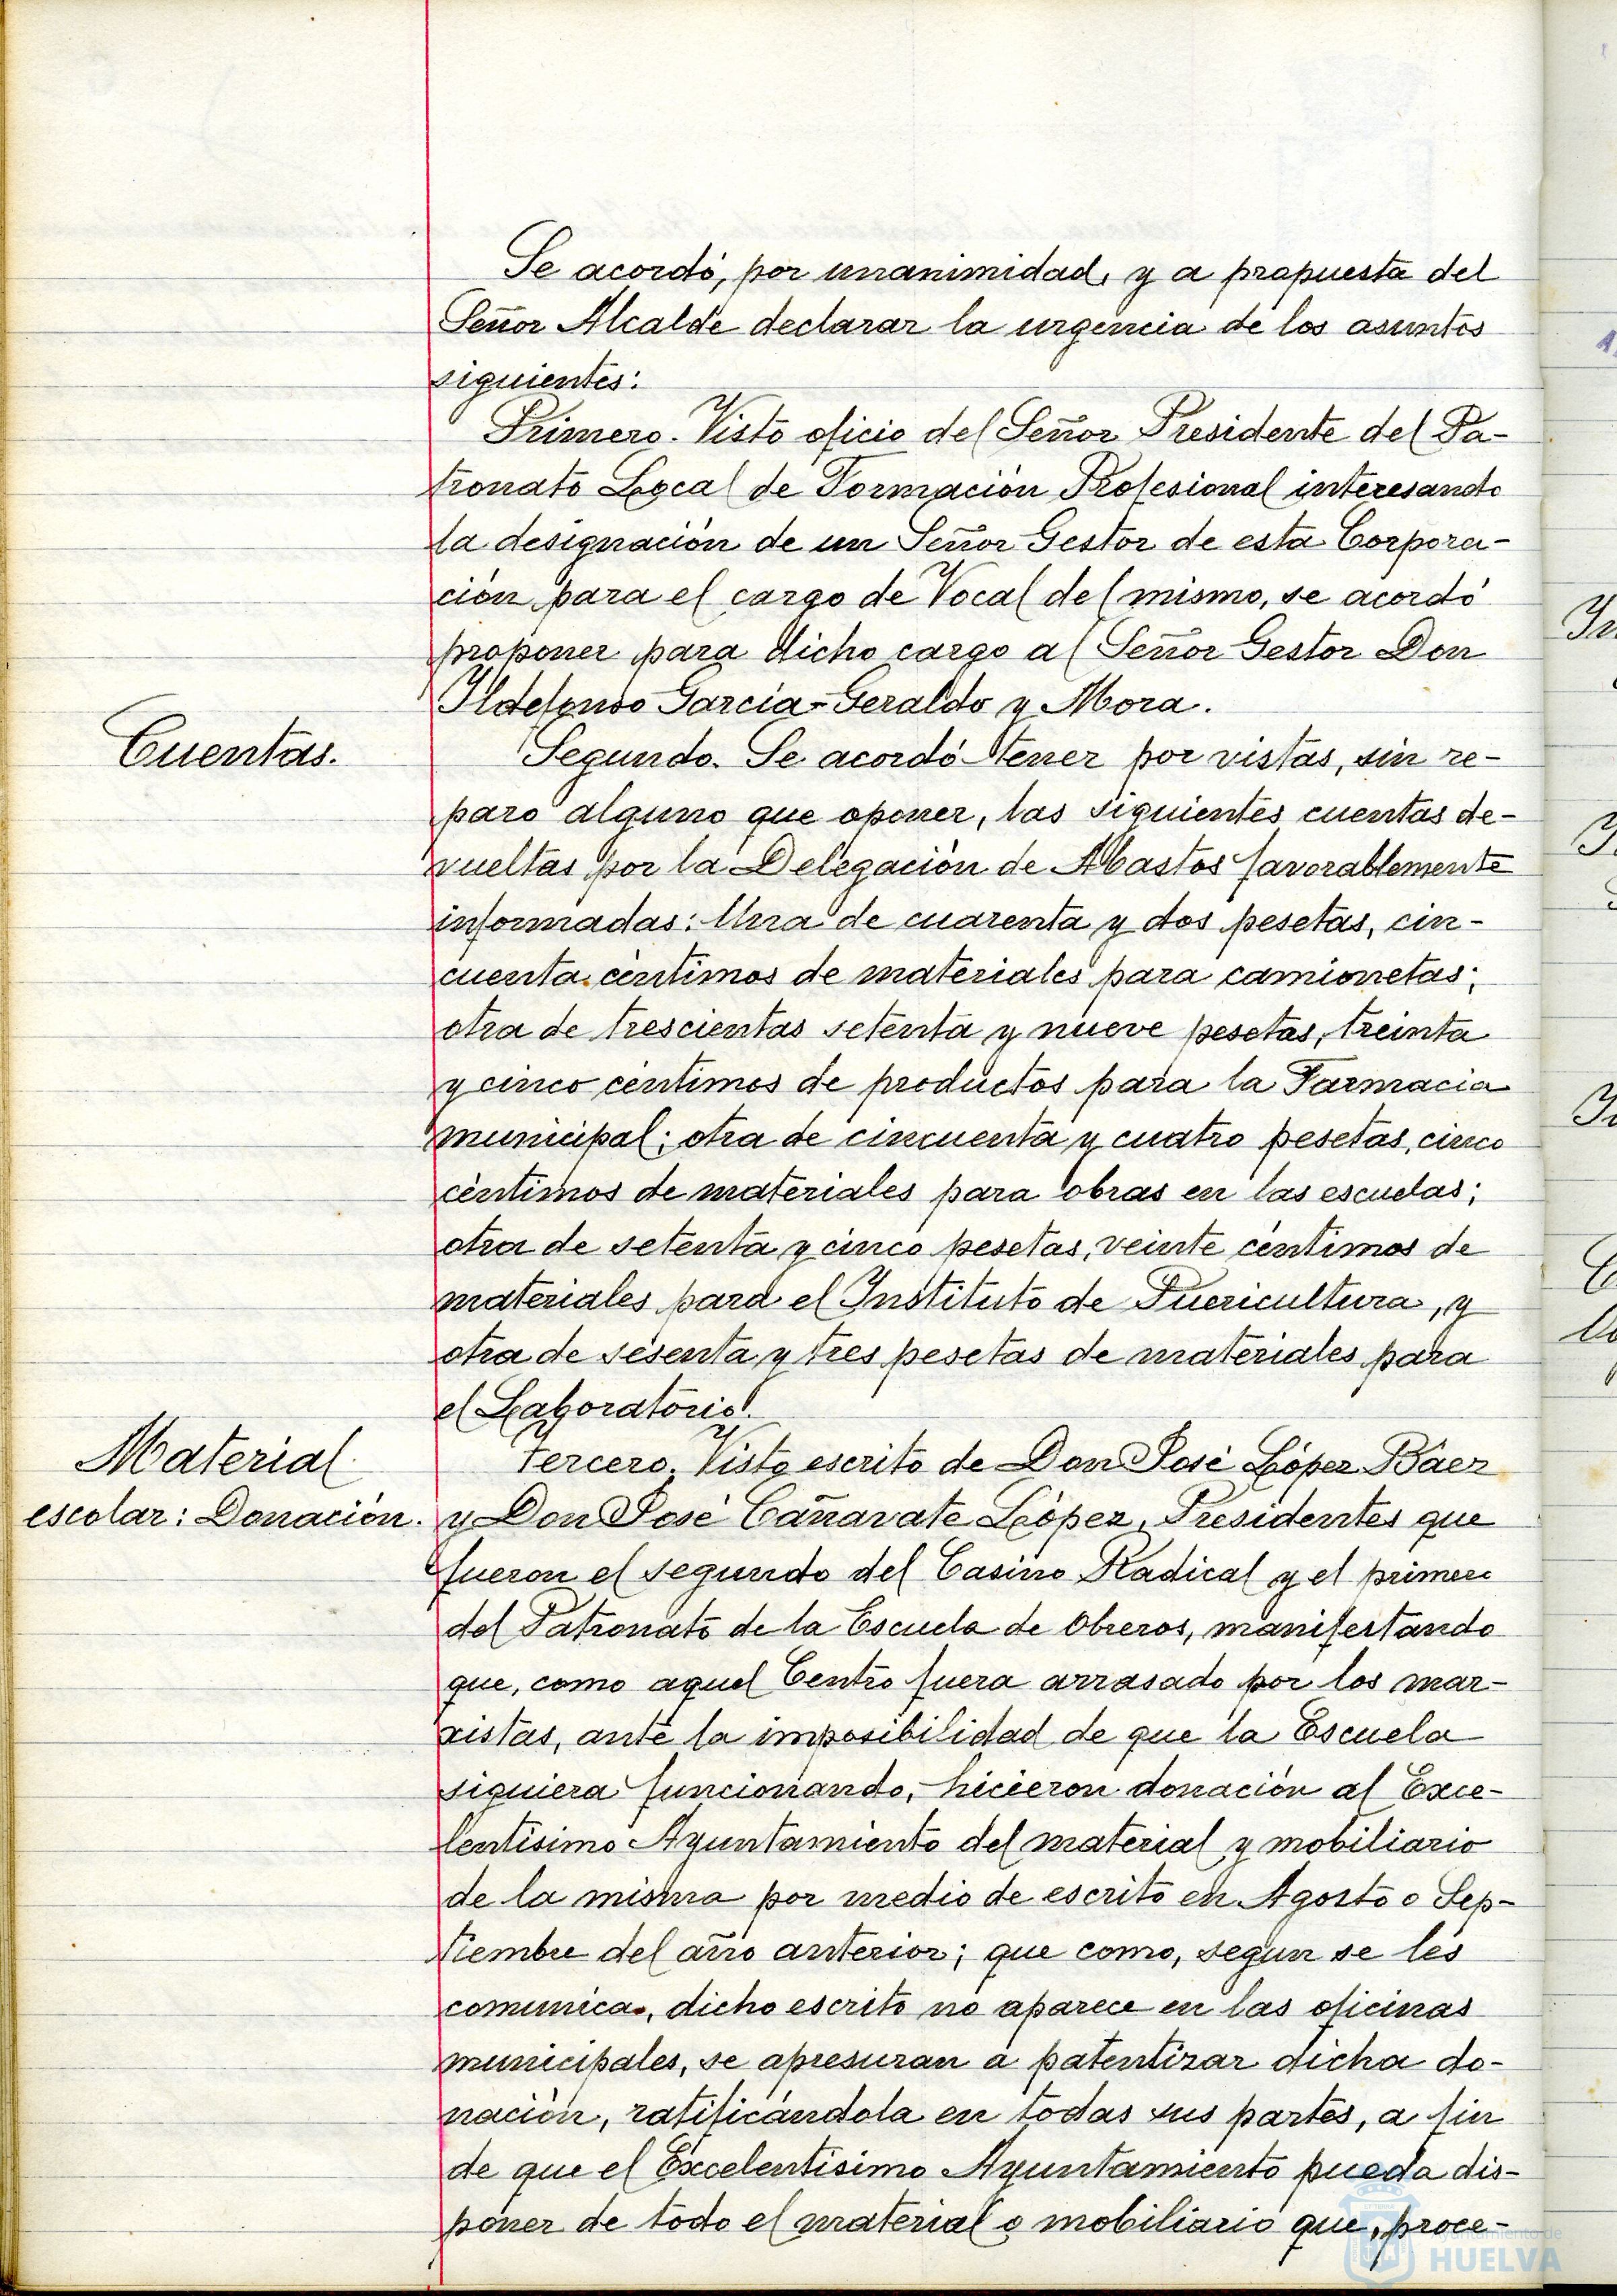 Se acordó, por unanimidad, y a propuesta del
Señor Alcalde declarar la urgencia de los asuntos
siguientes:
Primero. Visto oficio del Señor Presidente del Pa-
tronato Local de Formación Profesional interesando
la designación de un Señor Gestor de esta Corpora-
ción para el cargo de Vocal del mismo, se acordó
proponer para dicho cargo al Señor Gestor Don
Ildefonso García-Geraldo y Mora.
Cuentas.
Segundo. Se acordó tener por vistas, sin re-
paro alguno que oponer, las siguientes cuentas de-
vueltas por la Delegación de Abastos favorablemente
informadas: Una de cuarenta y dos pesetas, cin-
cuenta céntimos de materiales para camionetas;
otra de trescientas setenta y nueve pesetas, treinta
y cinco céntimos de productos para la Farmacia
municipal; otra de cincuenta y cuatro pesetas, cinco
céntimos de materiales para obras en las escuelas;
otra de setenta y cinco pesetas, veinte céntimos de
materiales para el Instituto de Puericultura, y
otra de sesenta y tres pesetas de materiales para
el Laboratorio.
Material
escolar: Donación.
Tercero. Visto escrito de Don José López Báez
y Don José Cañavate López, Presidentes que
fueron el segundo del Casino Radical y el primero
del Patronato de la Escuela de Obreros, manifestando
que, como aquel Centro fuera arrasado por los mar-
xistas, ante la imposibilidad de que la Escuela
siguiera funcionando, hicieron donación al Exce-
lentísimo Ayuntamiento del material y mobiliario
de la misma por medio de escrito en Agosto o Sep-
tiembre del año anterior; que como, segun se les
comunica, dicho escrito no aparece en las oficinas
municipales, se apresuran a patentizar dicha do-
nación, ratificándola en todas sus partes, a fin
de que el Excelentísimo Ayuntamiento pueda dis-
poner de todo el material o mobiliario que, proce-
Ayuntamiento de
HUELVA